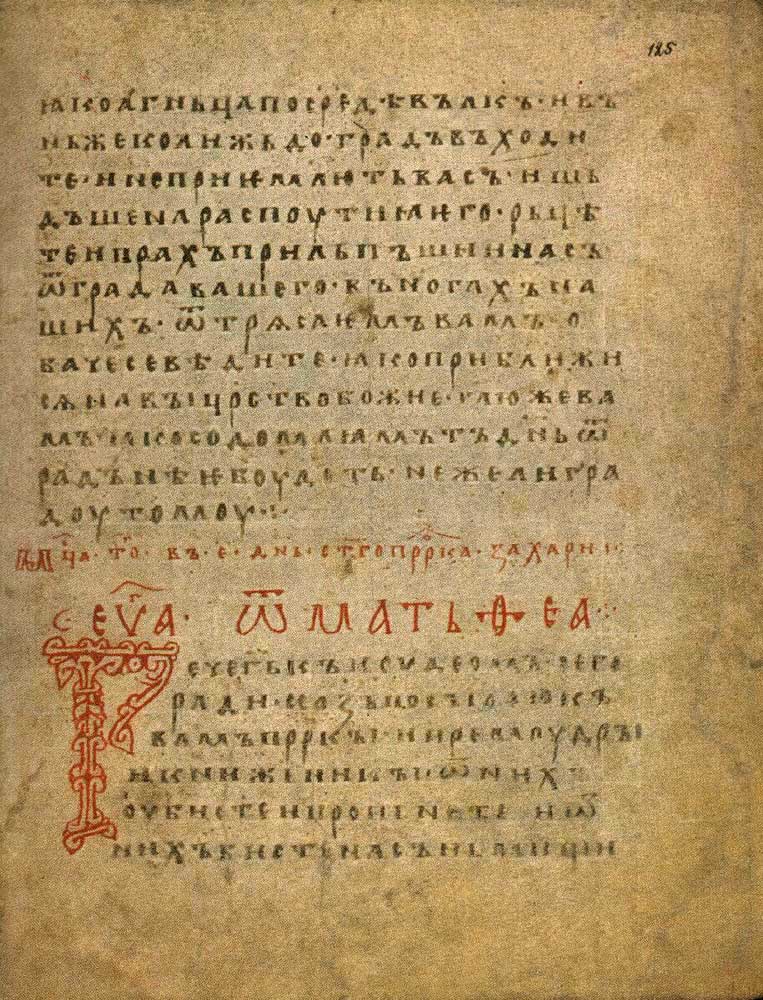 125
ꙗкоагньцапосредѣвълкъ· ивъ
ньжеколижьдо·градъвъходи
те· инеприѥмлють васъ· ишь
дъшенараспоутиꙗѥго· рьцѣ
теипрахъприльпъшиинасъ·
ѿградавашего· къногахъна
шихъ· ѿтрѧсаѥмъвамъ· о
бачесевѣдите· ꙗкоприближи
сѧнавыцрствобожие· глюжева
мъ· ꙗкосодомлѧмътъдньѿ
радьнѣѥбоудеть· нежелигра
доутомоу·:·
мца· то· въ· е· днь· стгопррка· захарии·
еуа· ѿматьѳеа·
Речегькъиоудеомъ· сего
ради· сеазъпосылаюкъ
вамъпррк꙽ы· ипремоудры
ꙗкнижьникы· ѿнихъ
оубиетеипропьнете· иѿ
нихъбиетенасъньмищи